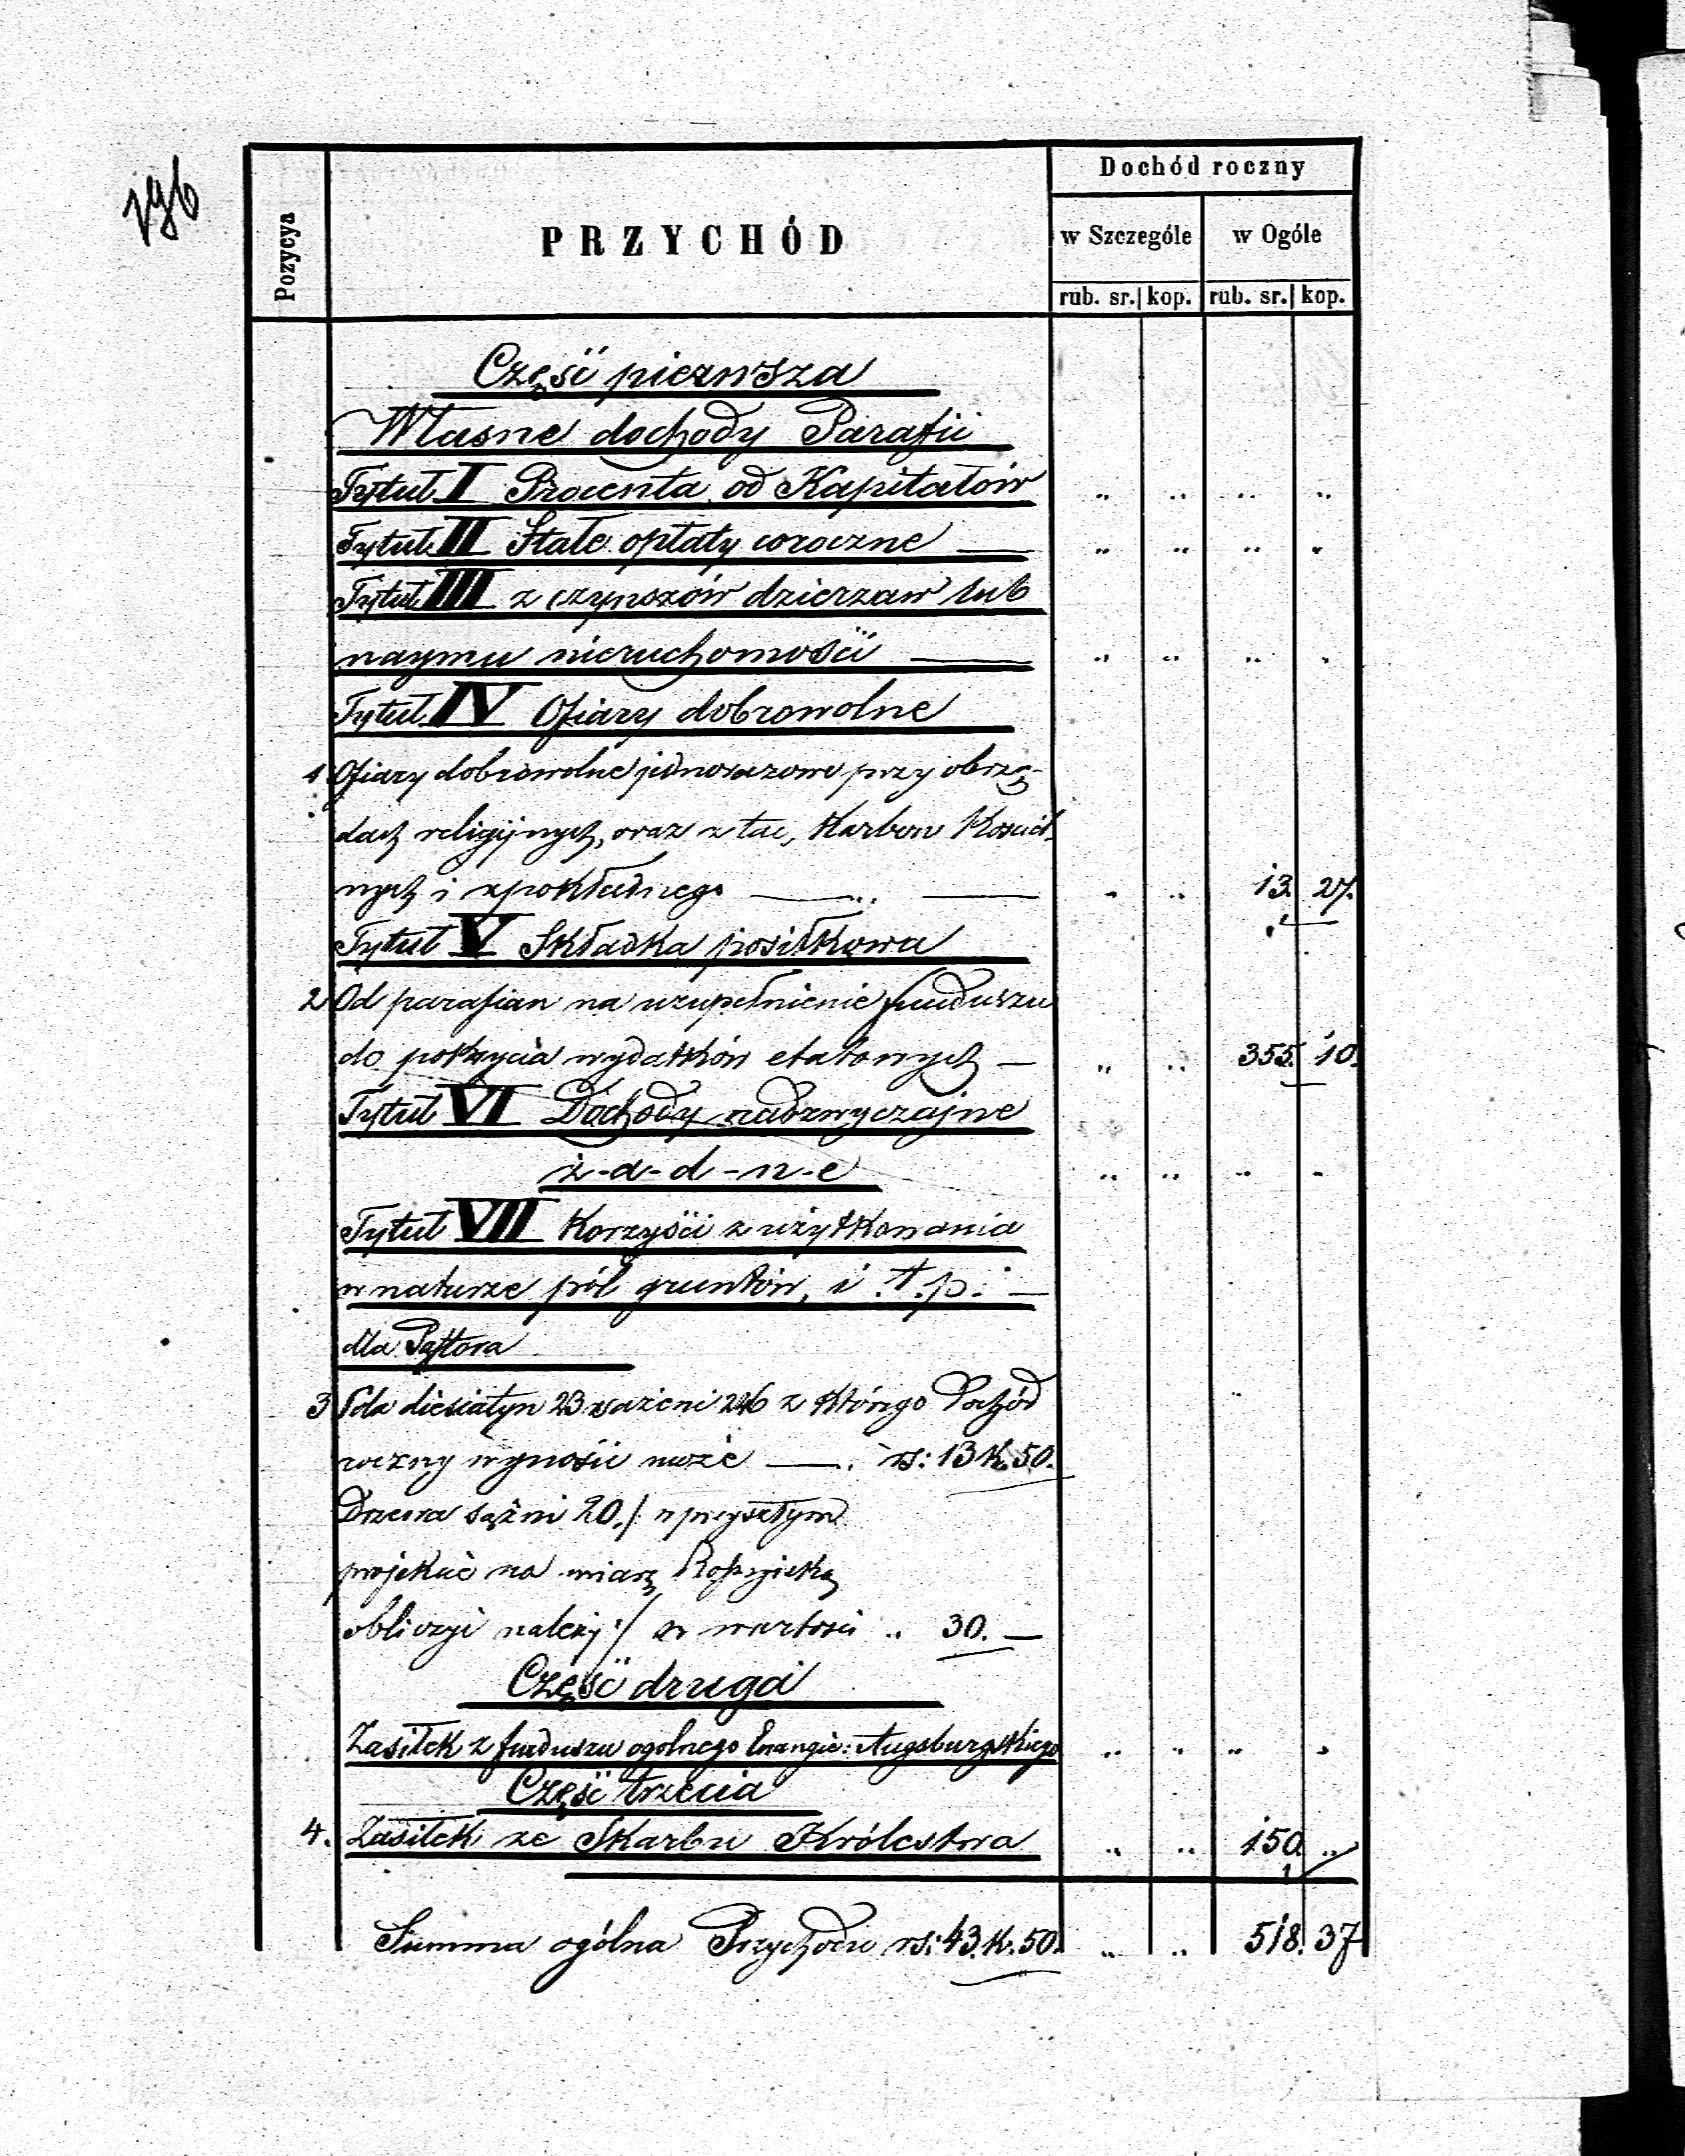 196
Dochód roczny
Pozycya
PRZYCHÓD
w Szczególe w Ogóle
rub. sr. kop. rub. sr. kop.
Część pierwsza
Własne dochody Parafii
Tytuł I Procenta od Kapitałów " " " "
Tytuł II Stałe opłaty coroczne — " " " "
Tytuł III z czynszów dzierzaw lub
naymu nieruchomości — " " " "
Tytuł IV Ofiary dobrowolne
1 Ofiary dobrowolne jednorazowe przy obrzę-
dach religijnych, oraz z tac, Karbon Kościel
nych i zpokładnego — " — " " 13. 27.
Tytuł V Składka posiłkowa
2 Od parafian na uzupełnienie funduszu
do pokrycia wydatków etatowych — " " 355. 10.
Tytuł VI Dochody nadzwyczajne
ż-a-d-n-e " " " "
Tytuł VII Korzyści z użytkowania
w naturze pól gruntów, i t. p. —
dla Pastora
3 Pola diesiatyn 23 sażeni 246 z którego Dochód
roczny wynosić może — . rs: 13 k. 50.
Drzewa sążni 20. /: w przyszłym
projekcie na miarę Rossyiską
obliczyć należy :/ w wartości " 30. —
Część druga
Zasiłek z funduszu ogolnego Ewangie: Augsburgskiego " " " "
Część trzecia
4. Zasiłek ze Skarbu Królestwa " " 150 "
Summa ogólna Przychodu rs: 43. k. 50. " " 518. 37